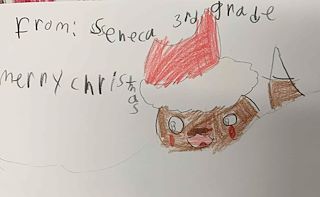 From: Seneca 3rd grade
merry christmas